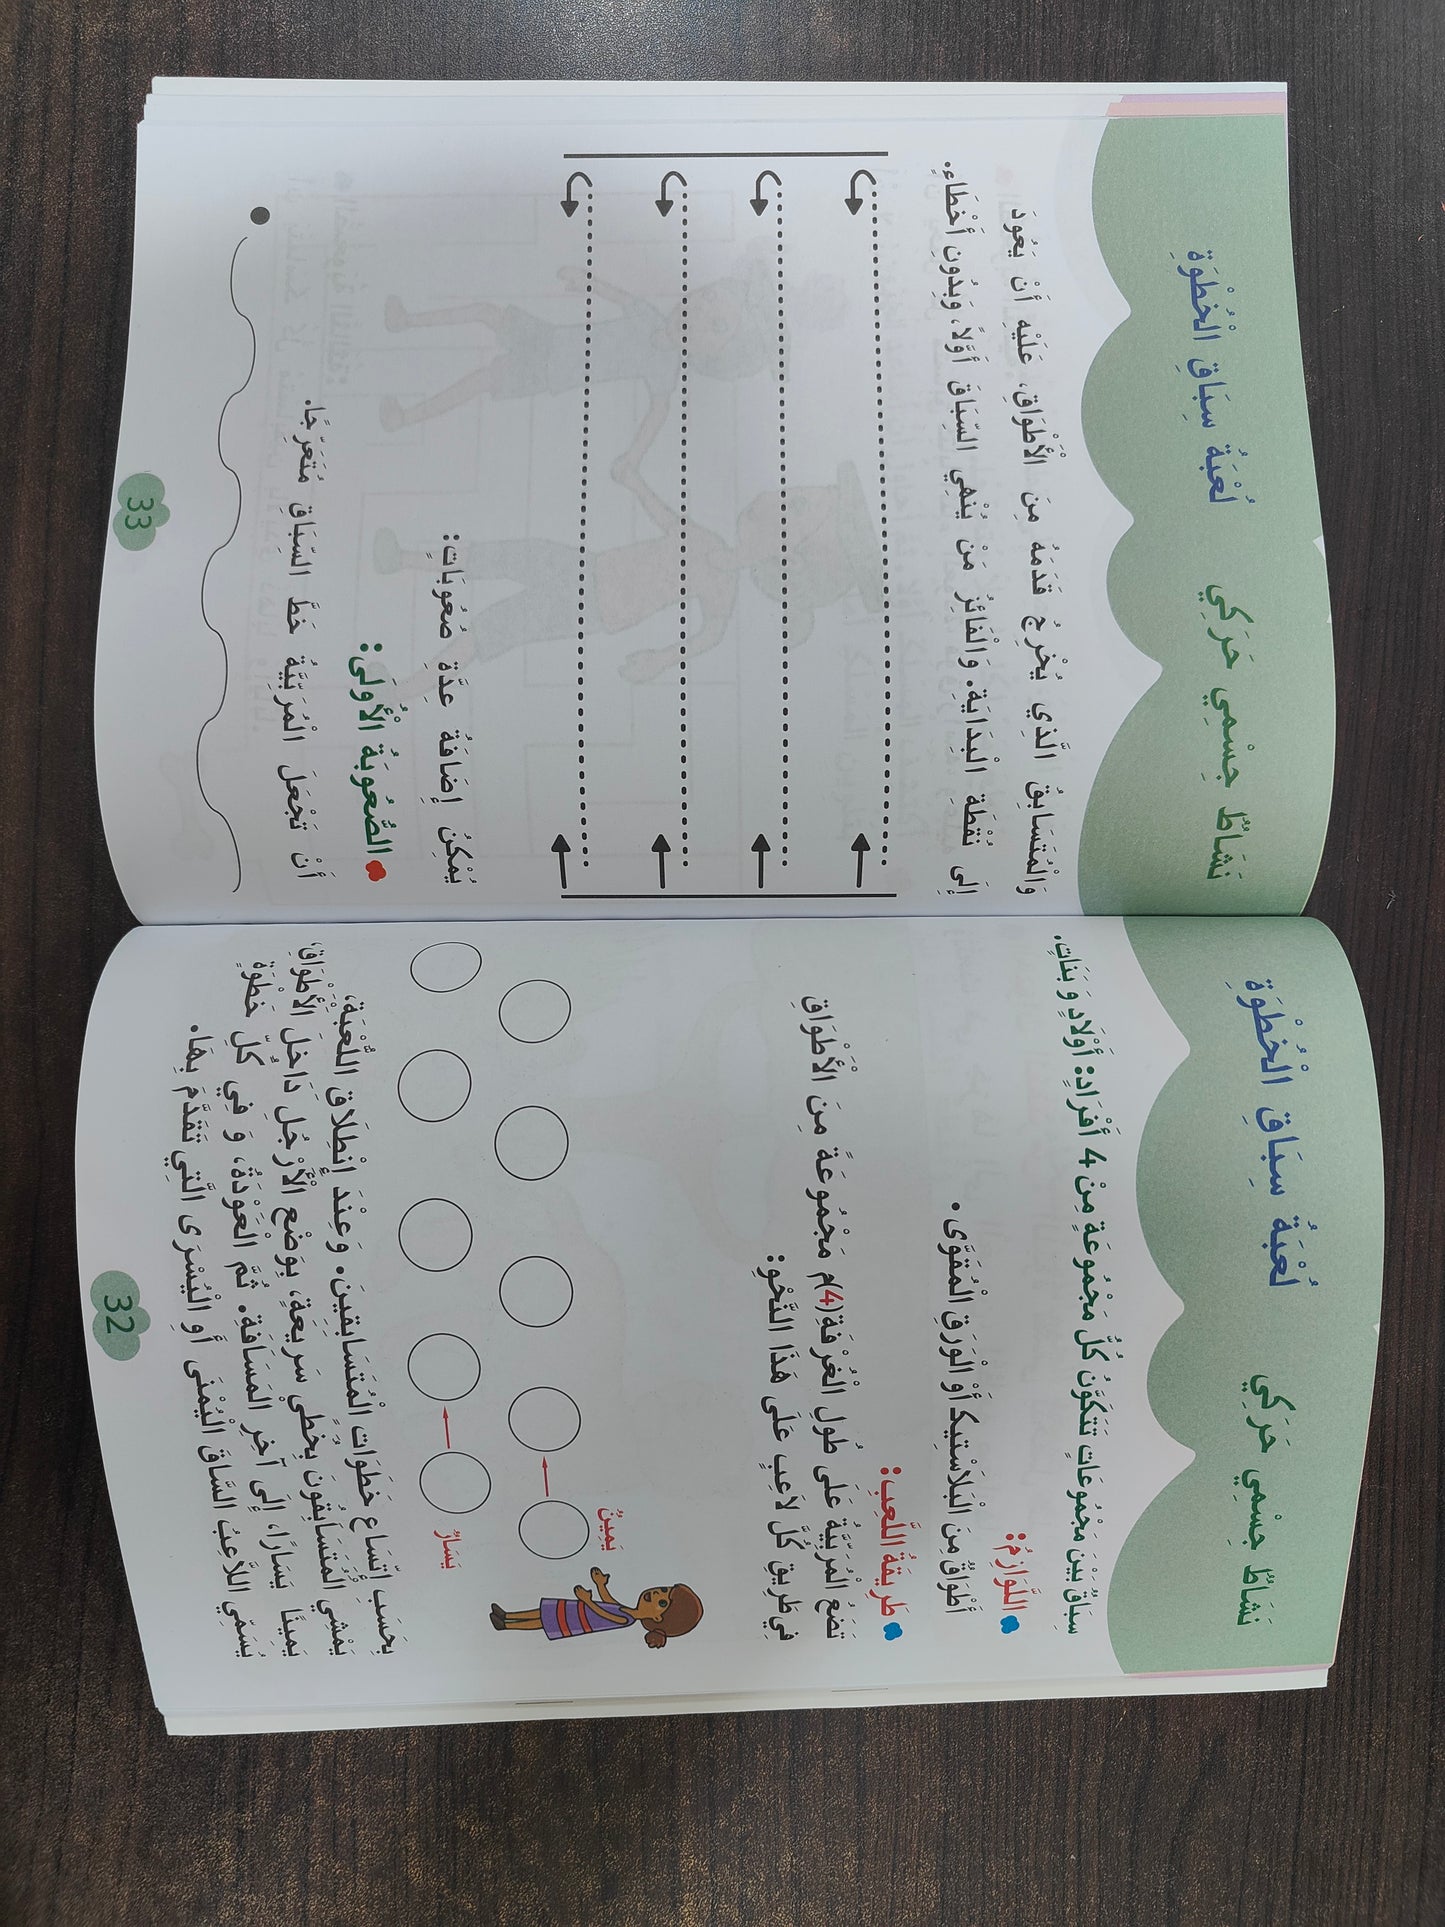 نَشَاطٌ جِسْمِي حَرَكِي لُعْبَةُ سِبَاقِ الْخُطْوَةِ
سِبَاقٌ بَيْنَ مَجْمُوعَاتٍ تَتَكَوَّنُ كُلُّ مَجْمُوعَةٍ مِنْ 4 أَفْرَادٍ: أَوْلَادٍ وَ بَنَاتٍ.
اللَّوَازِمُ:
أَطْوَاقٌ مِنَ الْبَلَاسْتِيكِ أَوْ الْوَرَقِ الْمُقَوَّى.
طَرِيقَةُ اللَّعِبِ:
تَضَعُ الْمُرَبِّيَةُ عَلَى طُولِ الْغُرْفَةِ (4)م مَجْمُوعَةً مِنَ الْأَطْوَاقِ
فِي طَرِيقِ كُلِّ لَاعِبٍ عَلَى هَذَا النَّحْوِ:
يَمِينٌ
يَسَارٌ
بِحَسَبِ اتِّسَاعِ خَطَوَاتِ الْمُتَسَابِقِينَ. وَعِنْدَ انْطِلَاقِ اللُّعْبَةِ،
يَمْشِي الْمُتَسَابِقُونَ بِخُطىً سَرِيعَةٍ، بِوَضْعِ الْأَرْجُلِ دَاخِلَ الْأَطْوَاقِ،
يَمِينًا يَسَارًا، إِلَى آخِرِ الْمَسَافَةِ. ثُمَّ الْعَوْدَةُ، وَ فِي كُلِّ خَطْوَةٍ
يُسَمِّي اللَّاعِبُ السَّاقَ الْيُمْنَى أَوِ الْيُسْرَى الَّتِي تَقَدَّمَ بِهَا.
32
نَشَاطٌ جِسْمِي حَرَكِي لُعْبَةُ سِبَاقِ الْخُطْوَةِ
وَالْمُتَسَابِقُ الَّذِي يُخْرِجُ قَدَمَهُ مِنَ الْأَطْوَاقِ، عَلَيْهِ أَنْ يَعُودَ
إِلَى نُقْطَةِ الْبِدَايَةِ. وَالْفَائِزُ مَنْ يُنْهِي السِّبَاقَ أَوَّلًا، وَبِدُونِ أَخْطَاءٍ.
يُمْكِنُ إِضَافَةُ عِدَّةِ صُعُوبَاتٍ:
الصُّعُوبَةُ الْأُولَى:
أَنْ تَجْعَلَ الْمُرَبِّيَةُ خَطَّ السِّبَاقِ مُتَعَرِّجًا.
33